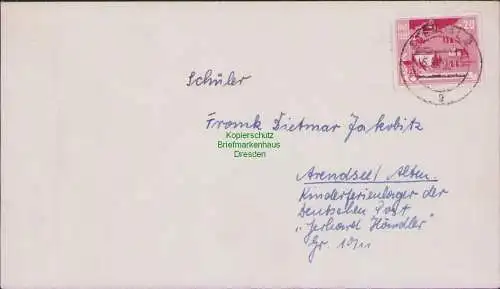 20
Schüler
Frank Dietmar Jakobitz
Kopierschutz
Briefmarkenhaus
Dresden
Arendsee/ Altm.
Kinderferienlager der
Deutschen Post
"Gerhard Händler"
Gr. 10/11